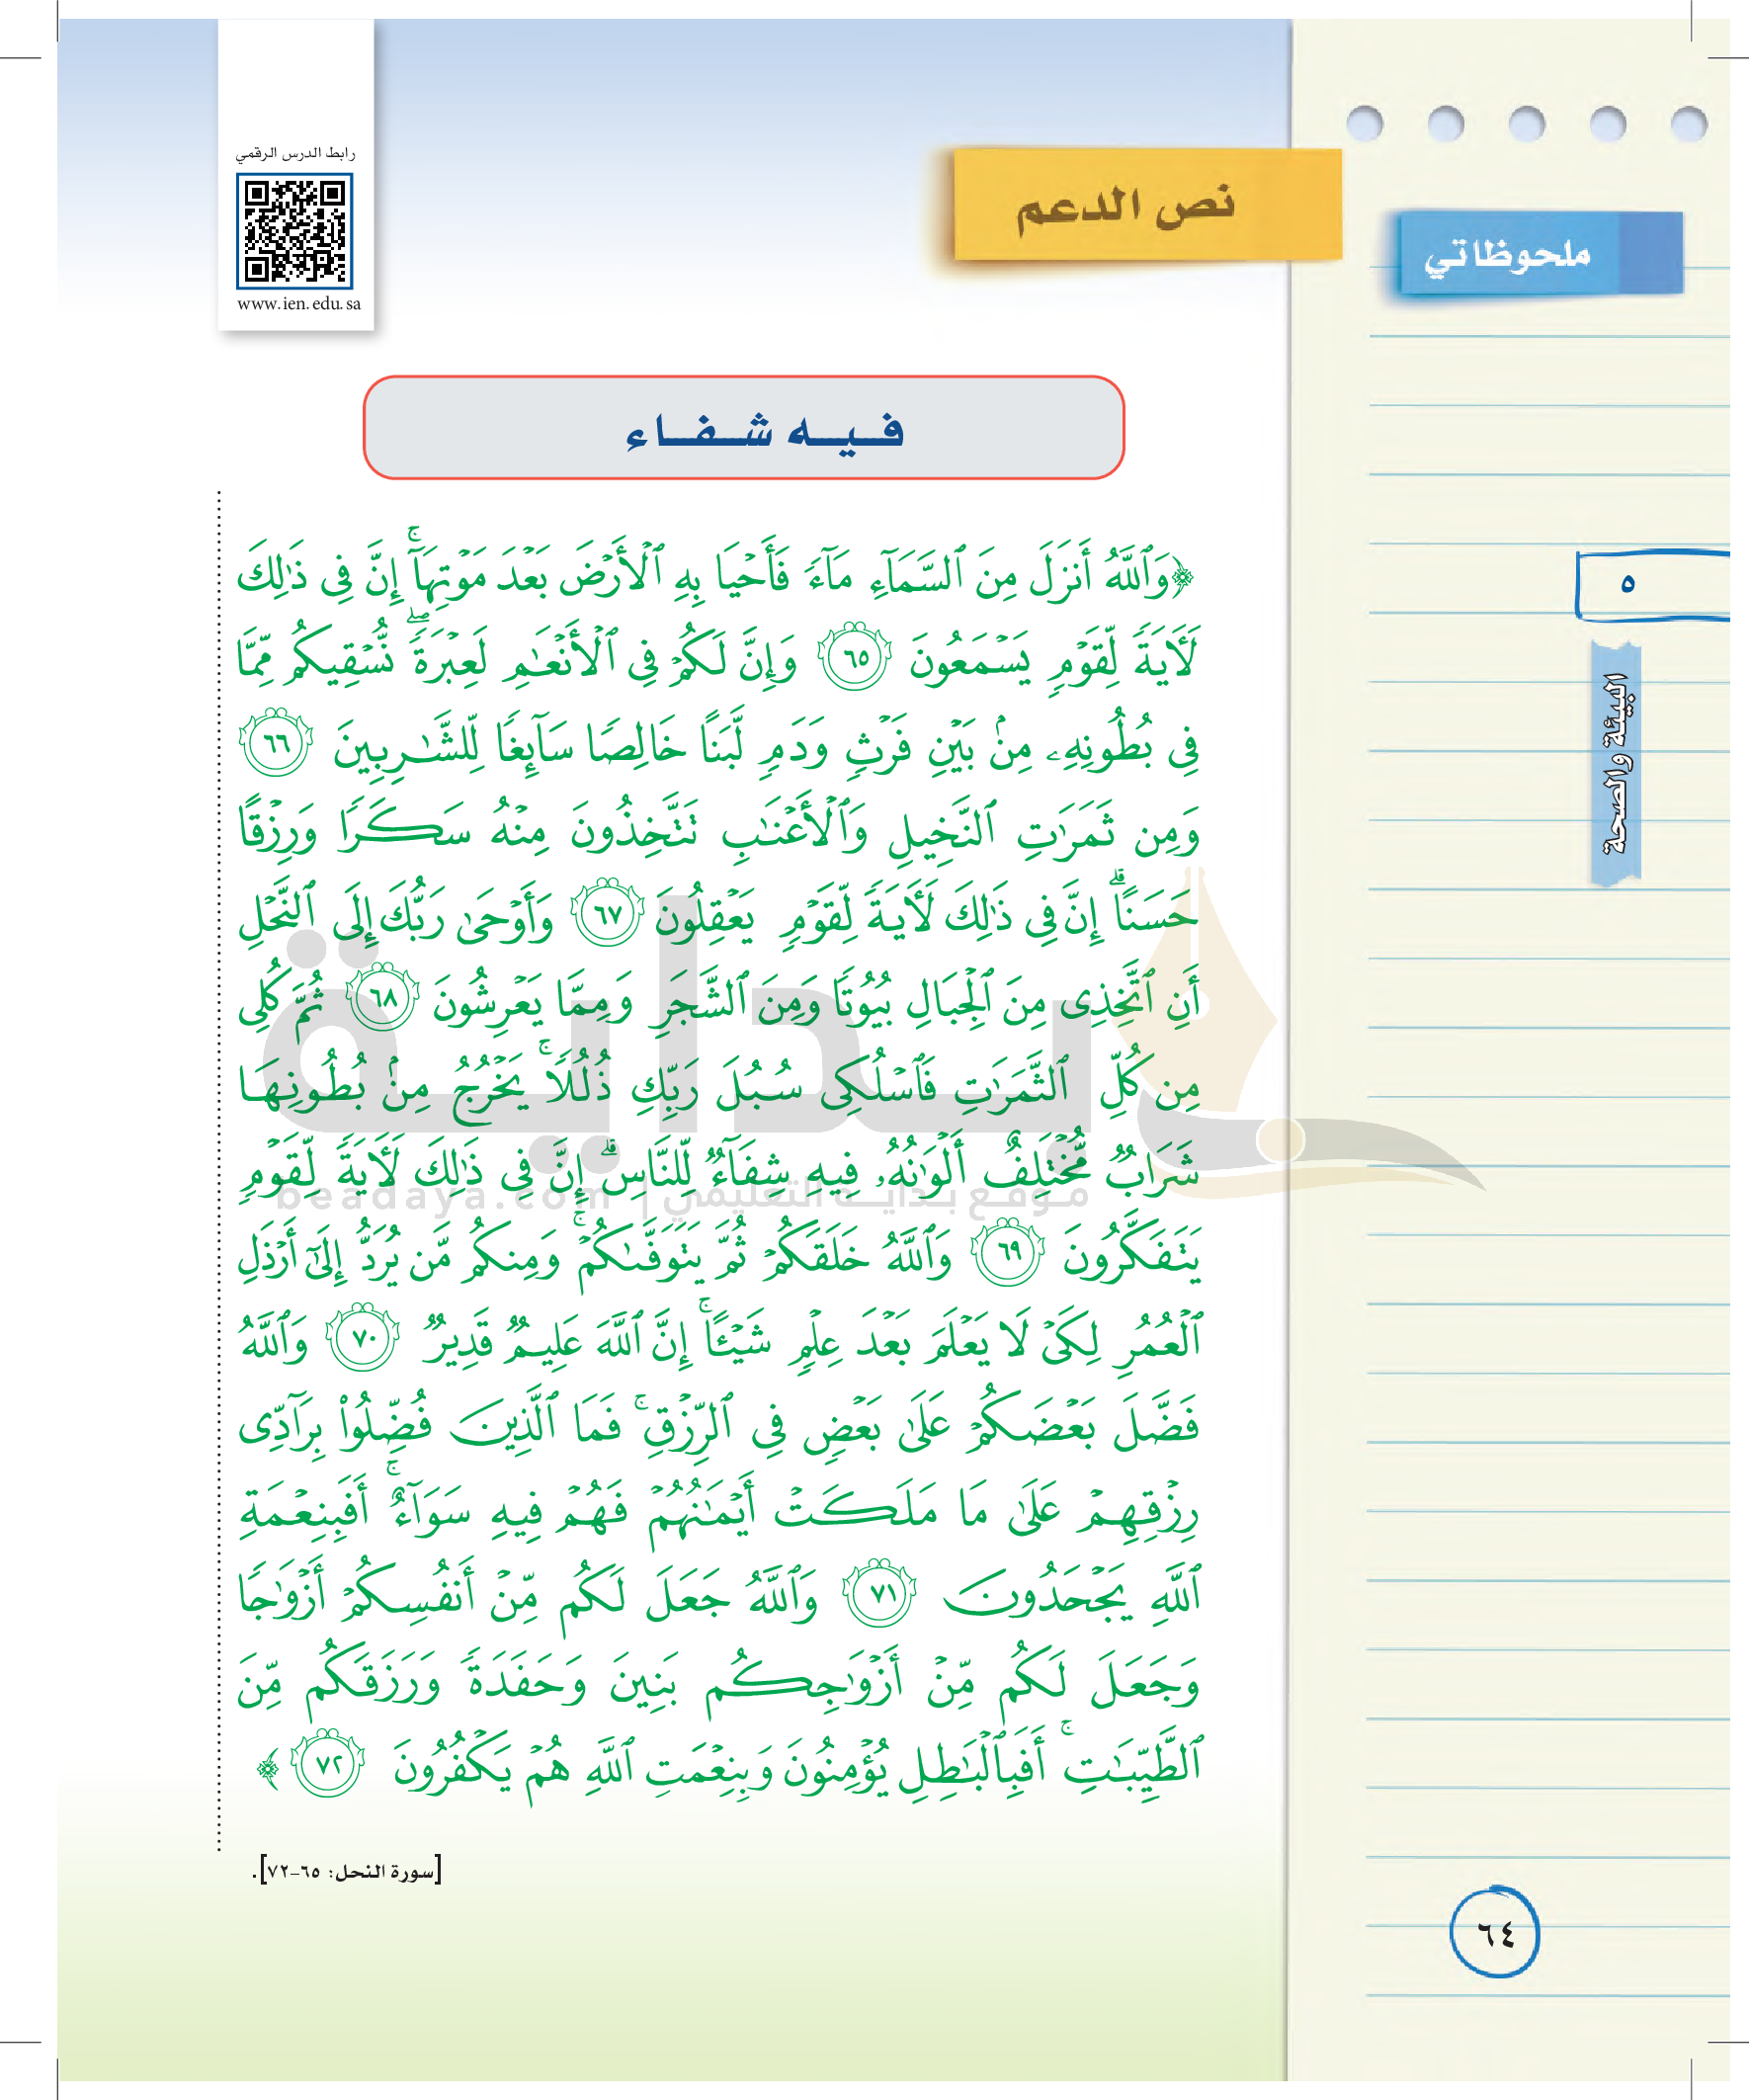 رابط الدرس الرقمي
www.ien.edu.sa
نص الدعم
ملحوظاتي
فيه شفاء
﴿وَٱللَّهُ أَنزَلَ مِنَ ٱلسَّمَآءِ مَآءٗ فَأَحۡيَا بِهِ ٱلۡأَرۡضَ بَعۡدَ مَوۡتِهَآۚ إِنَّ فِي ذَٰلِكَ
لَأٓيَةٗ لِّقَوۡمٖ يَسۡمَعُونَ ٦٥ وَإِنَّ لَكُمۡ فِي ٱلۡأَنۡعَٰمِ لَعِبۡرَةٗۖ نُّسۡقِيكُم مِّمَّا
فِي بُطُونِهِۦ مِنۢ بَيۡنِ فَرۡثٖ وَدَمٖ لَّبَنًا خَالِصٗا سَآئِغٗا لِّلشَّٰرِبِينَ ٦٦
وَمِن ثَمَرَٰتِ ٱلنَّخِيلِ وَٱلۡأَعۡنَٰبِ تَتَّخِذُونَ مِنۡهُ سَكَرٗا وَرِزۡقًا
حَسَنًاۚ إِنَّ فِي ذَٰلِكَ لَأٓيَةٗ لِّقَوۡمٖ يَعۡقِلُونَ ٦٧ وَأَوۡحَىٰ رَبُّكَ إِلَى ٱلنَّحۡلِ
أَنِ ٱتَّخِذِي مِنَ ٱلۡجِبَالِ بُيُوتٗا وَمِنَ ٱلشَّجَرِ وَمِمَّا يَعۡرِشُونَ ٦٨ ثُمَّ كُلِي
مِن كُلِّ ٱلثَّمَرَٰتِ فَٱسۡلُكِي سُبُلَ رَبِّكِ ذُلُلٗاۚ يَخۡرُجُ مِنۢ بُطُونِهَا
شَرَابٞ مُّخۡتَلِفٌ أَلۡوَٰنُهُۥ فِيهِ شِفَآءٞ لِّلنَّاسِۚ إِنَّ فِي ذَٰلِكَ لَأٓيَةٗ لِّقَوۡمٖ
يَتَفَكَّرُونَ ٦٩ وَٱللَّهُ خَلَقَكُمۡ ثُمَّ يَتَوَفَّىٰكُمۡۚ وَمِنكُم مَّن يُرَدُّ إِلَىٰٓ أَرۡذَلِ
ٱلۡعُمُرِ لِكَيۡ لَا يَعۡلَمَ بَعۡدَ عِلۡمٖ شَيۡـًٔاۚ إِنَّ ٱللَّهَ عَلِيمٞ قَدِيرٞ ٧٠ وَٱللَّهُ
فَضَّلَ بَعۡضَكُمۡ عَلَىٰ بَعۡضٖ فِي ٱلرِّزۡقِۚ فَمَا ٱلَّذِينَ فُضِّلُواْ بِرَآدِّي
رِزۡقِهِمۡ عَلَىٰ مَا مَلَكَتۡ أَيۡمَٰنُهُمۡ فَهُمۡ فِيهِ سَوَآءٌۚ أَفَبِنِعۡمَةِ
ٱللَّهِ يَجۡحَدُونَ ٧١ وَٱللَّهُ جَعَلَ لَكُم مِّنۡ أَنفُسِكُمۡ أَزۡوَٰجٗا
وَجَعَلَ لَكُم مِّنۡ أَزۡوَٰجِكُم بَنِينَ وَحَفَدَةٗ وَرَزَقَكُم مِّنَ
ٱلطَّيِّبَٰتِۚ أَفَبِٱلۡبَٰطِلِ يُؤۡمِنُونَ وَبِنِعۡمَتِ ٱللَّهِ هُمۡ يَكۡفُرُونَ ٧٢﴾
[سورة النحل: ٦٥-٧٢].
٥
البيئة والصحة
٦٤
بداية
موقع بداية التعليمي | beadaya.com